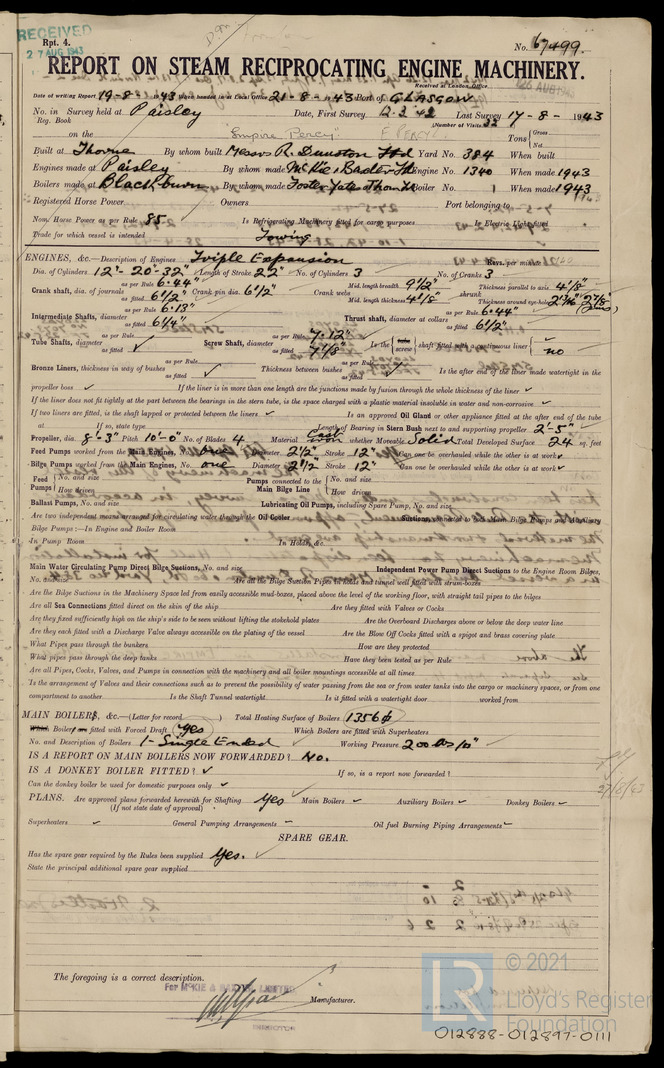 RECEIVED
27 AUG 1943
Rpt. 4.
No. 67499.
REPORT ON STEAM RECIPROCATING ENGINE MACHINERY.
Received at London Office 26 AUG 1943
Date of writing Report 19-8-1943 When handed in at Local Office 21-8-1943 Port of GLASGOW
No. in Reg. Book Survey held at Paisley Date, First Survey 2-3-42 Last Survey 17-8-1943
(Number of Visits 32
on the "Empire Percy" E PERCY Tons { Gross Net
Built at Thorne By whom built Messrs R. Dunston Ltd Yard No. 384 When built
Engines made at Paisley By whom made McKie & Baxter Ltd Engine No. 1340 When made 1943
Boilers made at Blackburn By whom made Foster Yates & Thom Ltd Boiler No. 1 When made 1943
Registered Horse Power Owners Port belonging to
Nom. Horse Power as per Rule 85 Is Refrigerating Machinery fitted for cargo purposes Is Electric Light fitted
Trade for which vessel is intended Towing
ENGINES, &c.—Description of Engines Triple Expansion Revs. per minute
Dia. of Cylinders 12"-20"-32" Length of Stroke 22" No. of Cylinders 3 No. of Cranks 3
Crank shaft, dia. of journals as per Rule 6.44" as fitted 6 1/2" Crank pin dia. 6 1/2" Crank webs Mid. length breadth 9 1/2" Mid. length thickness 4 1/8" shrunk Thickness parallel to axis 4 1/8" Thickness around eye-hole
Intermediate Shafts, diameter as per Rule 6.13" as fitted 6 1/4" Thrust shaft, diameter at collars as per Rule 6.44" as fitted 6 1/2"
Tube Shafts, diameter as per Rule as fitted ✓ Screw Shaft, diameter as per Rule 7.12" as fitted 7 1/8" Is the { tube screw } shaft fitted with a continuous liner { no
Bronze Liners, thickness in way of bushes as per Rule as fitted Thickness between bushes as per Rule as fitted Is the after end of the liner made watertight in the
propeller boss ✓ If the liner is in more than one length are the junctions made by fusion through the whole thickness of the liner ✓
If the liner does not fit tightly at the part between the bearings in the stern tube, is the space charged with a plastic material insoluble in water and non-corrosive ✓
If two liners are fitted, is the shaft lapped or protected between the liners ✓ Is an approved Oil Gland or other appliance fitted at the after end of the tube
at If so, state type Length of Bearing in Stern Bush next to and supporting propeller 2'-5"
Propeller, dia. 8'-3" Pitch 10'-0" No. of Blades 4 Material Cast Iron whether Moveable Solid Total Developed Surface 24 sq. feet
Feed Pumps worked from the Main Engines, No. one Diameter 2 1/2" Stroke 12" Can one be overhauled while the other is at work ✓
Bilge Pumps worked from the Main Engines, No. one Diameter 2 1/2 Stroke 12" Can one be overhauled while the other is at work ✓
Feed Pumps { No. and size How driven Pumps connected to the Main Bilge Line { No. and size How driven
Ballast Pumps, No. and size Lubricating Oil Pumps, including Spare Pump, No. and size
Are two independent means arranged for circulating water through the Oil Cooler Suctions, connected to both Main Bilge Pumps and Auxiliary
Bilge Pumps :—In Engine and Boiler Room
In Pump Room In Holds, &c.
Main Water Circulating Pump Direct Bilge Suctions, No. and size Independent Power Pump Direct Suctions to the Engine Room Bilges,
No. and size Are all the Bilge Suction Pipes in holds and tunnel well fitted with strum-boxes
Are the Bilge Suctions in the Machinery Space led from easily accessible mud-boxes, placed above the level of the working floor, with straight tail pipes to the bilges
Are all Sea Connections fitted direct on the skin of the ship Are they fitted with Valves or Cocks
Are they fixed sufficiently high on the ship's side to be seen without lifting the stokehold plates Are the Overboard Discharges above or below the deep water line
Are they each fitted with a Discharge Valve always accessible on the plating of the vessel Are the Blow Off Cocks fitted with a spigot and brass covering plate
What Pipes pass through the bunkers How are they protected
What pipes pass through the deep tanks Have they been tested as per Rule
Are all Pipes, Cocks, Valves, and Pumps in connection with the machinery and all boiler mountings accessible at all times
Is the arrangement of Valves and their connections such as to prevent the possibility of water passing from the sea or from water tanks into the cargo or machinery spaces, or from one
compartment to another Is the Shaft Tunnel watertight Is it fitted with a watertight door worked from
MAIN BOILERS, &c.—(Letter for record ) Total Heating Surface of Boilers 1356 ф
Which Boilers are fitted with Forced Draft yes Which Boilers are fitted with Superheaters
No. and Description of Boilers 1-Single Ended Working Pressure 200 lbs/□"
IS A REPORT ON MAIN BOILERS NOW FORWARDED? No.
IS A DONKEY BOILER FITTED? ✓ If so, is a report now forwarded?
Can the donkey boiler be used for domestic purposes only ✓
PLANS. Are approved plans forwarded herewith for Shafting Yes Main Boilers ✓ Auxiliary Boilers ✓ Donkey Boilers ✓
(If not state date of approval)
Superheaters ✓ General Pumping Arrangements ✓ Oil fuel Burning Piping Arrangements ✓
27/8/43
SPARE GEAR.
Has the spare gear required by the Rules been supplied Yes.
State the principal additional spare gear supplied
The foregoing is a correct description.
For McKIE & BAXTER, LIMITED
Manufacturer.
LR
© 2021
Lloyd's Register
Foundation
012888-012897-0111